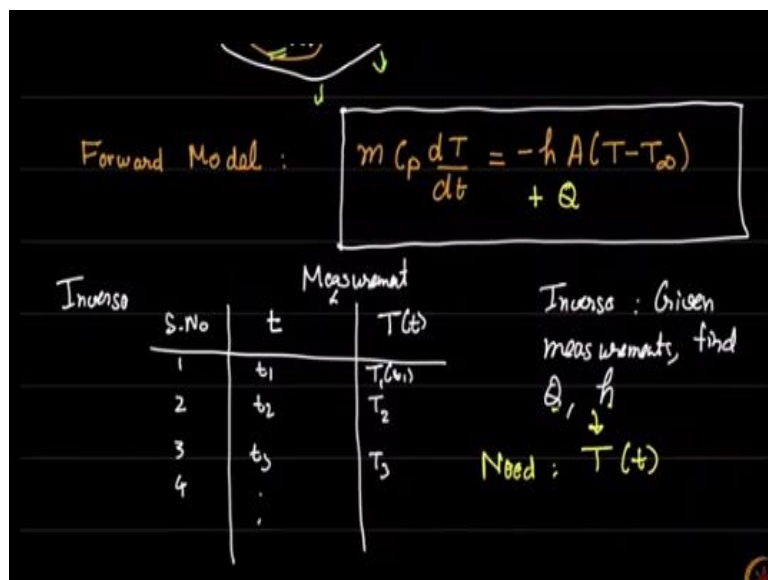 Forward Model : m Cp dT/dt = -h A(T-T∞)
+ Q
Inverse
Measurement
S.No t T(t)
1 t1 T1(t1)
2 t2 T2
3 t3 T3
4 .
.
Inverse : Given
measurements, find
Q, h
Need : T(t)